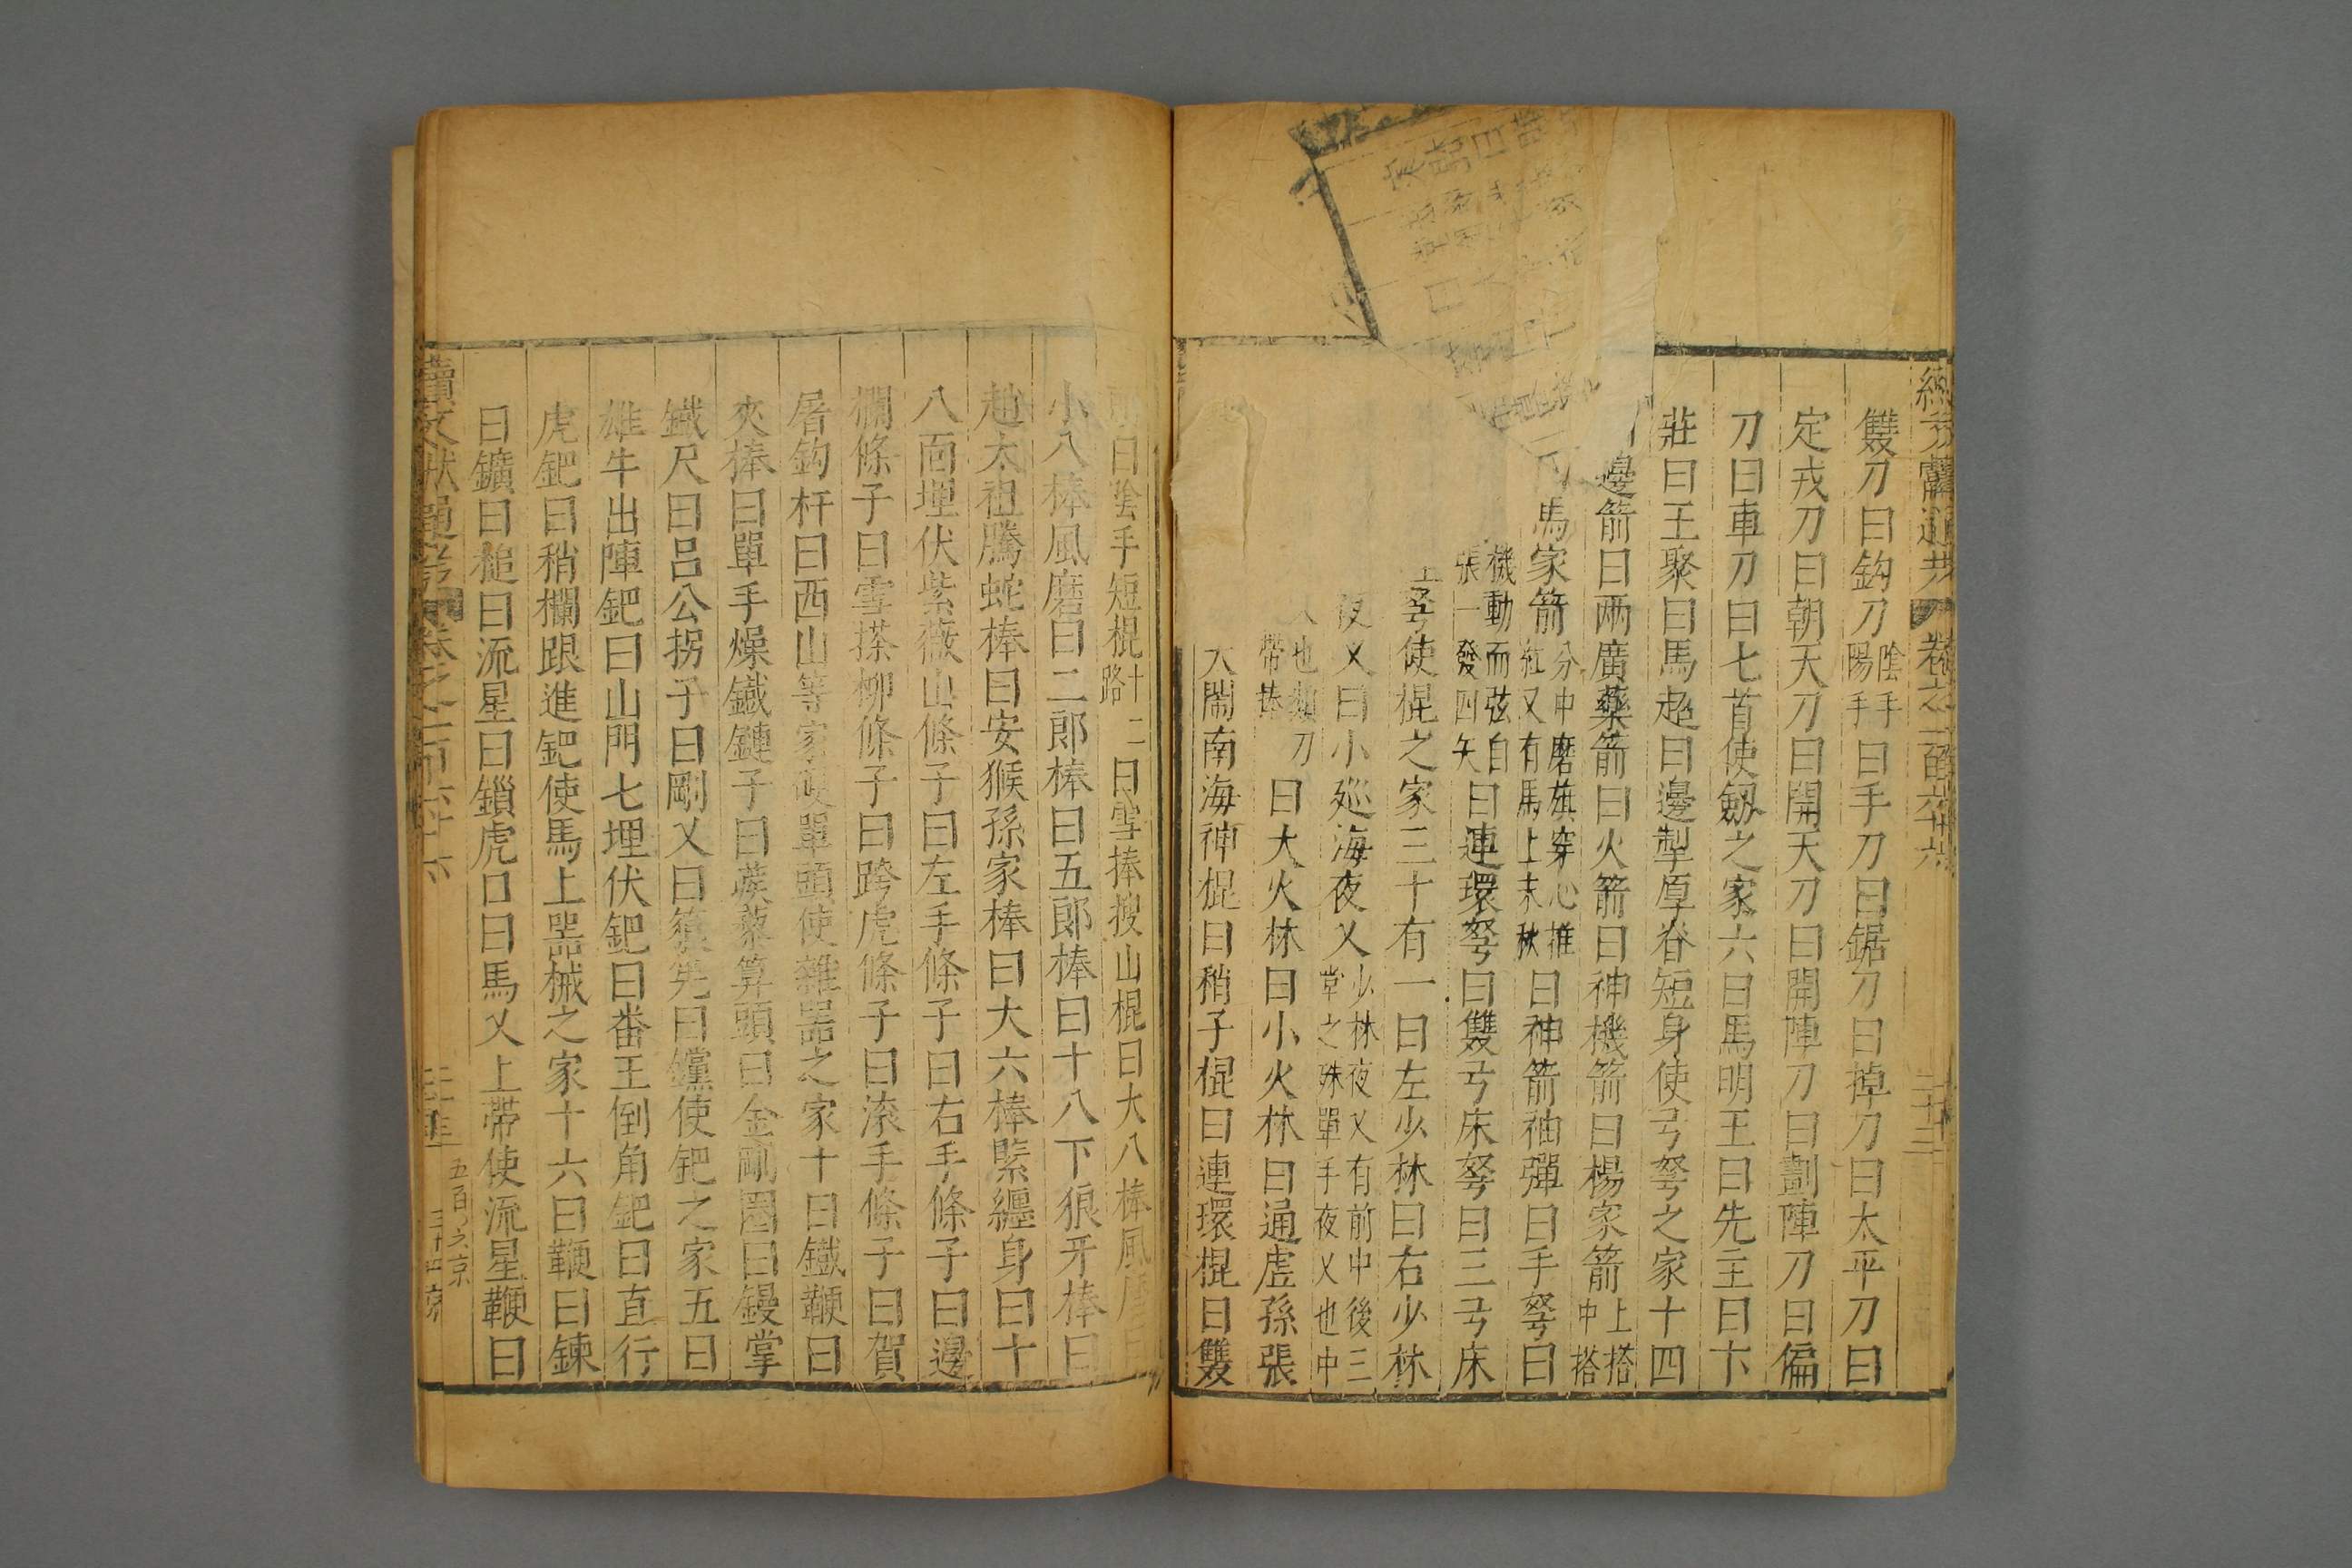 卷之一百六十六
雙刀曰鈎刀陰手陽手曰手刀曰鋸刀曰掉刀曰太平刀曰
定戎刀曰朝天刀曰開天刀曰開陣刀曰劃陣刀曰偏
刀曰車刀曰七首使劔之家六曰馬明王曰先主曰卞
莊曰王聚曰馬超曰邊掣厚脊短身使弓弩之家十四
邊箭曰兩廣藥箭曰火箭曰神機箭曰楊家箭上搭中搭
馬家箭分中磨旗穿心推紅又有馬上末秋曰神箭袖彈曰手弩曰
機動而弦自張一發四矢曰連環弩曰雙弓床弩曰三弓床
弩使棍之家三十有一曰左少林曰右少林
夜乂曰小廵海夜乂少林夜乂有前中後三堂之殊單手夜乂也中
也刀帶棒曰大火林曰小火林曰通虗孫張
大閙南海神棍曰稍子棍曰連環棍曰雙
曰陰手短棍十二路曰雪棒搜山棍曰大八棒風磨曰
小八棒風磨曰二郎棒曰五郎棒曰十八下狼牙棒曰
趙太祖騰蛇棒曰安猴孫家棒曰大六棒緊纏身曰十
八面埋伏紫薇山條子曰左手條子曰右手條子曰邊
欄條子曰雪搽柳條子曰跨虎條子曰滚手條子曰賀
屠鈎杆曰西山等家使單頭使雜噐之家十曰鐵鞭曰
夾棒曰單手燥鐵鏈子曰蒺藜蒜頭曰金剛圈曰鏝掌
鐵尺曰呂公拐子曰剛乂曰筤筅曰钂使鈀之家五曰
雄牛出陣鈀曰山門七埋伏鈀曰番王倒角鈀曰直行
虎鈀曰稍攔跟進鈀使馬上噐械之家十六曰鞭曰鍊
曰鑛曰槌曰流星曰鎖虎口曰馬乂上帶使流星鞭曰
續文獻通考卷之一百六十六